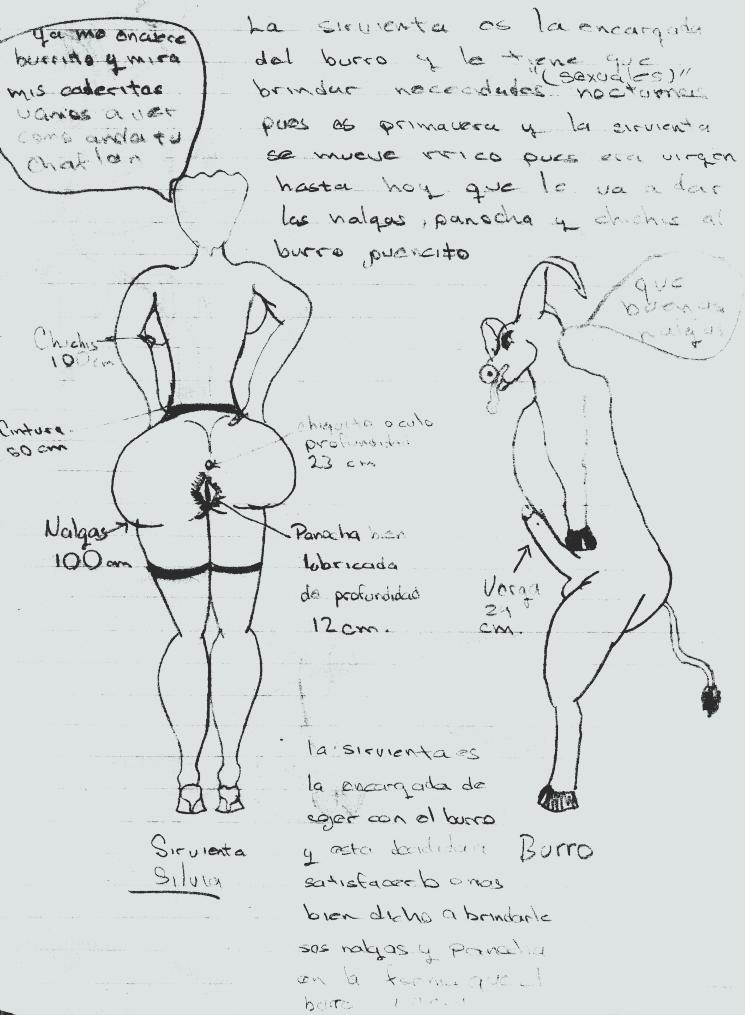 ya me encuere
burrito y mira
mis caderitas
vamos a ver
como anda tu
chaflan
La sirvienta es la encargada
del burro y le tiene que
"(sexuales)"
brindar nececidades nocturnas
pues es primavera y la sirvienta
se mueve rrico pues era virgen
hasta hoy que le va a dar
las nalgas, panocha y chichis al
burro, puercito
que
buenas
nalgas
Chichis
100cm
Cintura
60 cm
chiquito o culo
profundidad
23 cm
Nalgas
100cm
Panocha bien
lubricada
de profundidad
12 cm.
Verga
cm.
la sirvienta es
la encargada de
cojer con el burro
y esta
satisfacerlo o mas
bien dicho a brindarle
sos nalgas y panocha
en la forma que el
burro
Sirvienta
Silvia
Burro